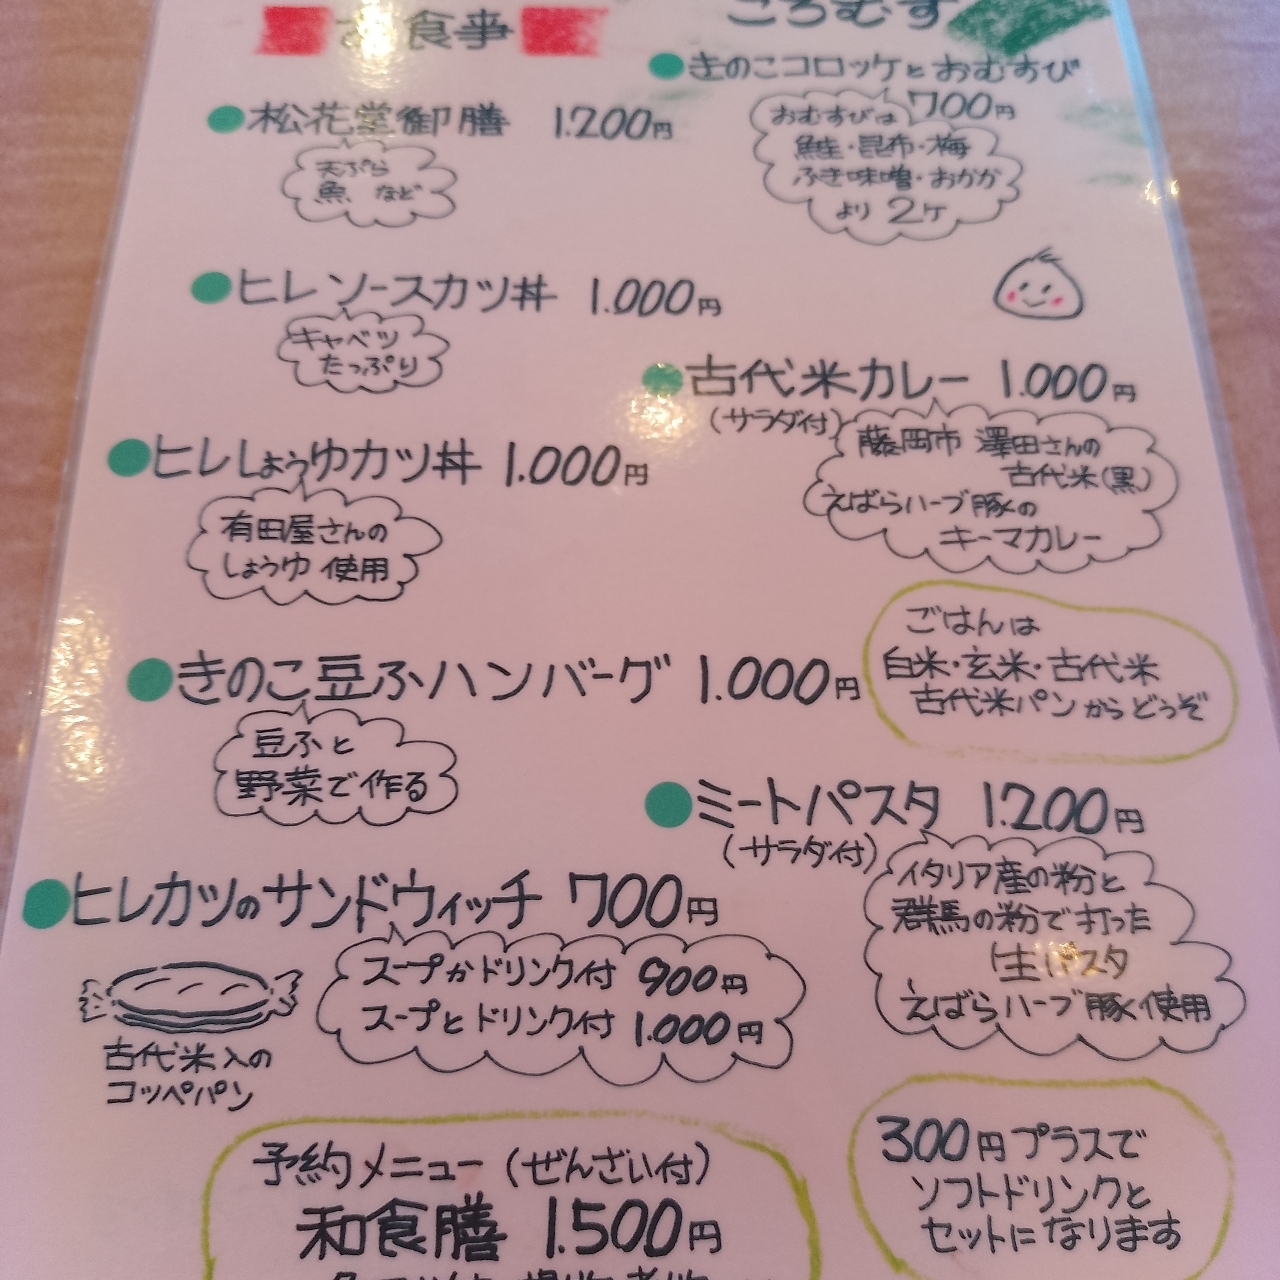 お食事
松花堂御膳 1.200円
天ぷら
魚 など
ヒレソースカツ丼 1.000円
キャベツ
たっぷり
ヒレしょうゆカツ丼 1.000円
有田屋さんの
しょうゆ 使用
きのこ豆ふハンバーグ 1.000円
豆ふと
野菜で作る
ヒレカツのサンドウィッチ 700円
スープかドリンク付 900円
スープとドリンク付 1.000円
古代米入の
コッペパン
予約メニュー(ぜんざい付)
和食膳 1.500円
ころむす
きのこコロッケとおむすび
700円
おむすびは
鮭・昆布・梅
ふき味噌・おかか
より 2ケ
古代米カレー 1.000円
(サラダ付)
藤岡市 澤田さんの
古代米(黒)
えばらハーブ豚の
キーマカレー
ごはんは
白米・玄米・古代米
古代米パンからどうぞ
ミートパスタ 1.200円
(サラダ付)
イタリア産の粉と
群馬の粉で打った
生パスタ
えばらハーブ豚使用
300円プラスで
ソフトドリンクと
セットになります